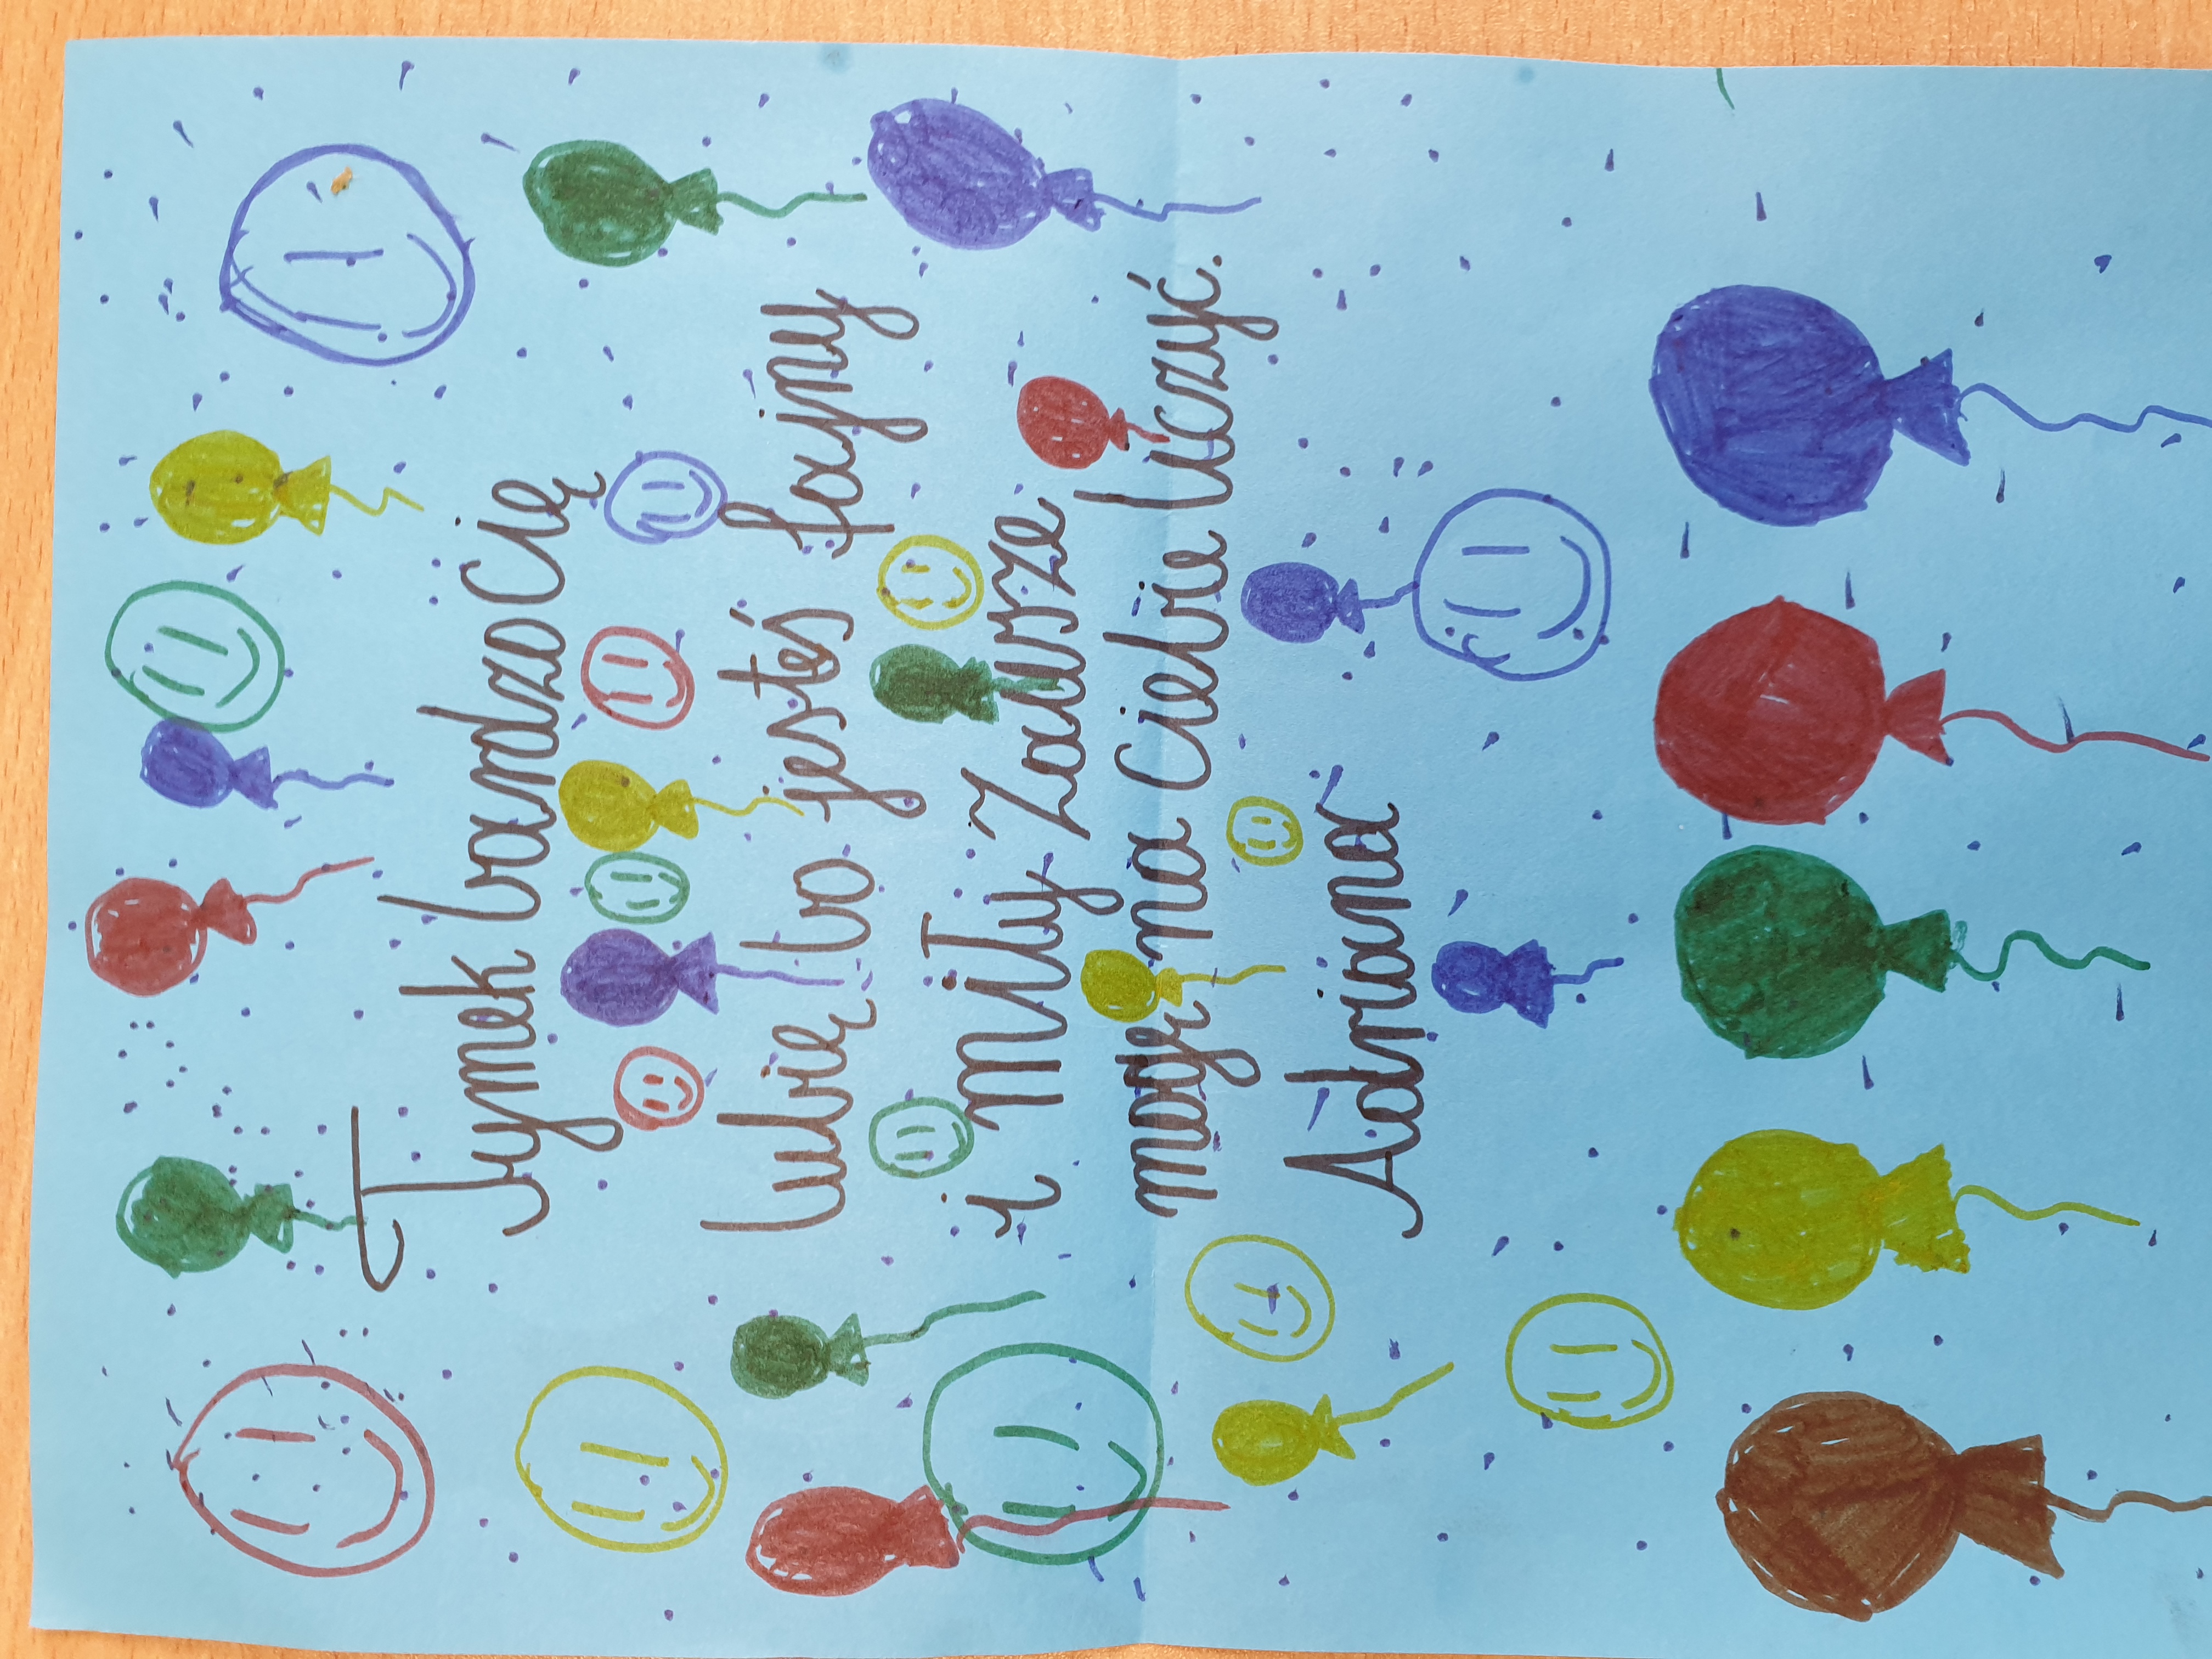 Tymek bardzo Cię
lubię bo jesteś fajny
i miły Zawsze
mogę na Ciebie liczyć.
Adriana